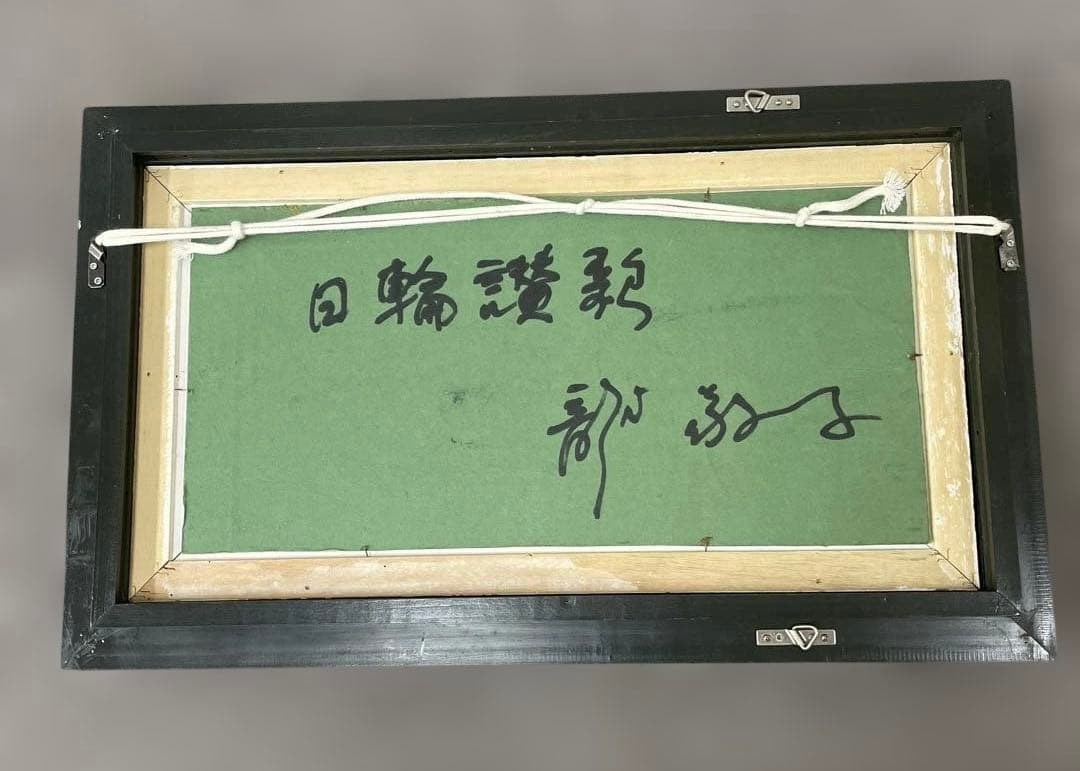 日輪讃歌
敬子